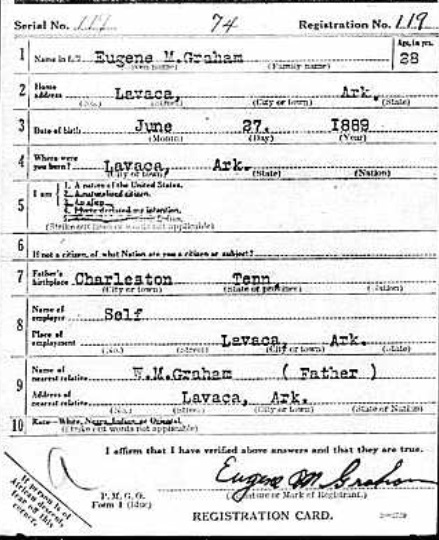 Serial No. 117 74 Registration No. 119
1 Name in full Eugene M.Graham Age, in yrs. 28
(Family name)
2 Home address Lavaca, Ark.
(No.) (Street) (City or town) (State)
3 Date of birth June 27. 1889
(Month) (Day) (Year)
4 Where were you born? Lavaca, Ark.
(City or town) (State) (Nation)
5 I am
1. A native of the United States.
2. A naturalized citizen.
3. An alien.
4. I have declared my intention.
5.
(Strike out lines or words not applicable)
6 If not a citizen, of what Nation are you a citizen or subject?
7 Father's birthplace Charleston Tenn
(City or town) (State or province) (Nation)
8 Name of employer Self
Place of employment Lavaca, Ark.
(No.) (Street) (City or town) (State)
9 Name of nearest relative W.M.Graham ( Father )
Address of nearest relative Lavaca, Ark.
(No.) (Street) (City or town) (State or Nation)
10 Race—White, Negro, Indian or Oriental.
(Strike out words not applicable)
I affirm that I have verified above answers and that they are true.
Eugene M Graham
(Signature or Mark of Registrant.)
P.M.G.O.
Form 1 (blue)
REGISTRATION CARD.
If person is of
African descent,
tear off this
corner.